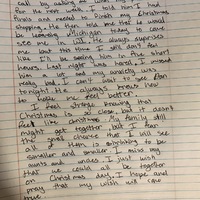 call by asking
For the rest I told him I had
finals and needed to finish my Christmas
shopping. He then told me that he would
be leaving Michigan today to come
see me in WI. He always surprises
me but this time I still don't feel
like I'll be seeing him in five short
hours. Last night was hard, I missed
him a lot and my anxiety was
really bad. I can't wait to see him
tonight! He always knows how
to make me feel better.
I feel strange knowing that
Christmas is so close, but it doesn't
feel like Christmas. My family still
might get together, but I fear
that the chance that I will see
all of them is continuing to be
smaller and smaller. I miss my
aunts and uncles. I just wish
that we could all be together
on Christmas day. I hope and
pray that my wish will come
true.